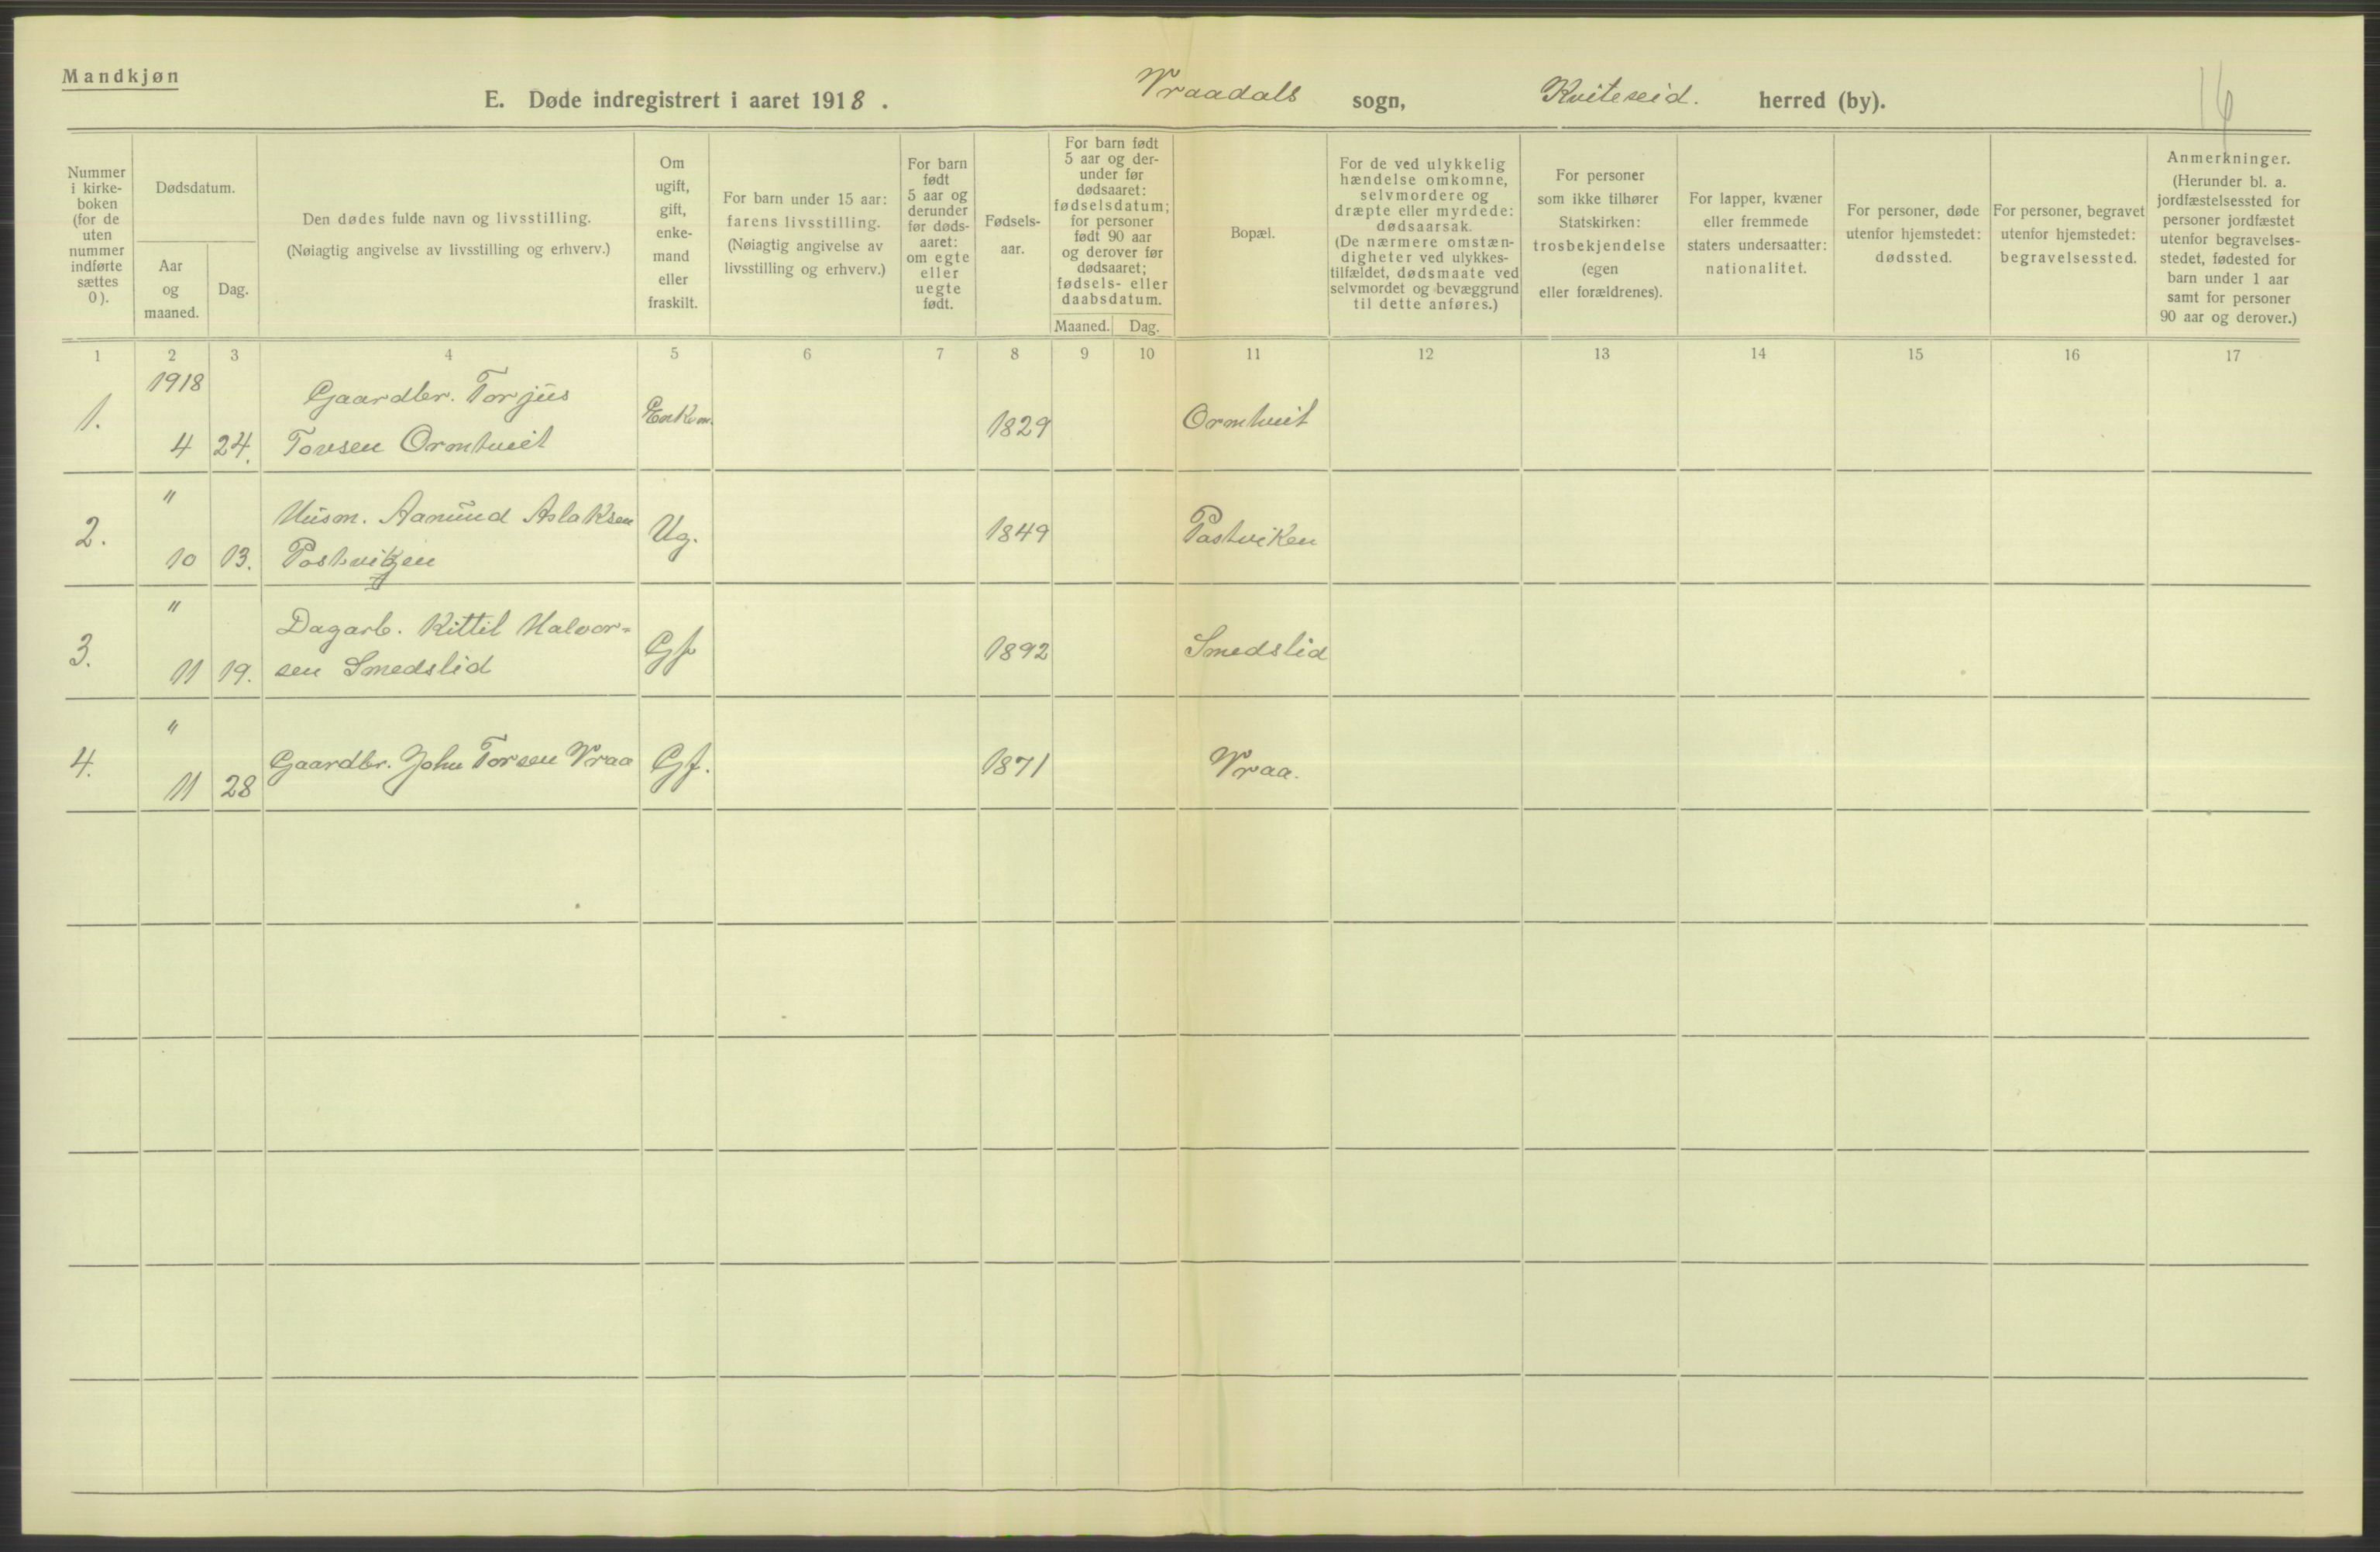 Mandkjøn
E. Døde indregistrert i aaret 1918. Vraadals sogn, Kviteseid. herred (by).
16
Nummer
i kirke-
boken
(for de
uten
nummer
indførte
sættes
0).
Dødsdatum.
Aar
og
maaned.
Dag.
Den dødes fulde navn og livsstilling.
(Nøiagtig angivelse av livsstilling og erhverv.)
Om
ugift,
gift,
enke-
mand
eller
fraskilt.
For barn under 15 aar:
farens livsstilling.
(Nøiagtig angivelse av
livsstilling og erhverv.)
For barn
født
5 aar og
derunder
før døds-
aaret:
om egte
eller
uegte
født.
Fødsels-
aar.
For barn født
5 aar og der-
under før
dødsaaret:
fødselsdatum;
for personer
født 90 aar
og derover før
dødsaaret;
fødsels- eller
daabsdatum.
Maaned. Dag.
Bopæl.
For de ved ulykkelig
hændelse omkomne,
selvmordere og
dræpte eller myrdede:
dødsaarsak.
(De nærmere omstæn-
digheter ved ulykkes-
tilfældet, dødsmaate ved
selvmordet og bevæggrund
til dette anføres.)
For personer
som ikke tilhører
Statskirken:
trosbekjendelse
(egen
eller forældrenes).
For lapper, kvæner
eller fremmede
staters undersaatter:
nationalitet.
For personer, døde
utenfor hjemstedet:
dødssted.
For personer, begravet
utenfor hjemstedet:
begravelsessted.
Anmerkninger.
(Herunder bl. a.
jordfæstelsessted for
personer jordfæstet
utenfor begravelses-
stedet, fødested for
barn under 1 aar
samt for personer
90 aar og derover.)
1 2 3 4 5 6 7 8 9 10 11 12 13 14 15 16 17
1918 Gaardbr. Torjus
1. Enkem. 1829 Ormtveit
4 24. Tovsen Ormtveit
" Husm. Aanund Aslaksen
2. Ug. 1849 Pastviken
10 13. Postviken
" Dagarb. Kittil Halvor-
3. Gf 1892 Smedslid
11 19. sen Smedslid
"
4. Gaardbr. John Torsen Vraa Gf. 1871 Vraa.
11 28